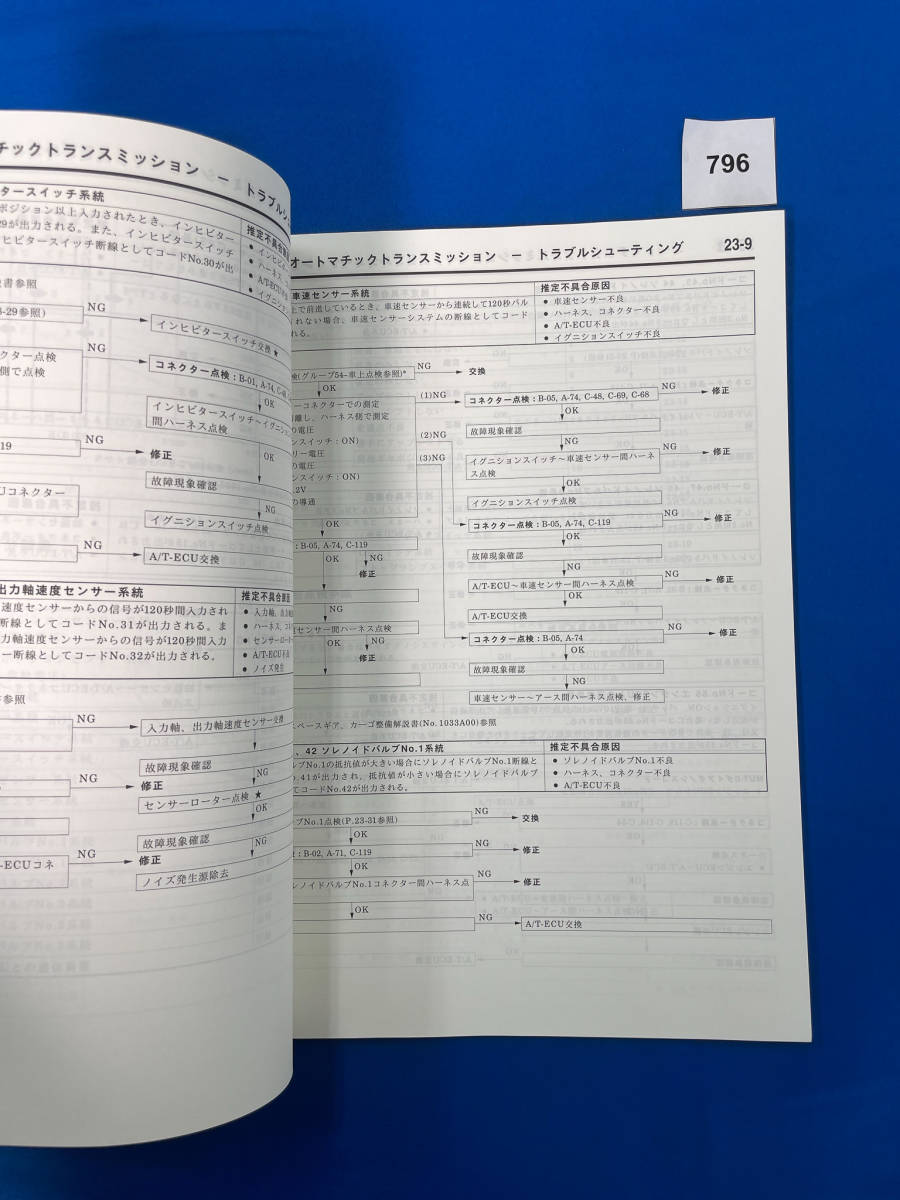 796
チックトランスミッション － トラブルシュ
タースイッチ系統
ポジション以上入力されたとき、インヒビター
29が出力される。また、インヒビタースイッチ
ヒビタースイッチ断線としてコードNo.30が出
推定不具合原
● インヒビ
● ハーネス、コ
● A/T-ECU不
● イグニッション
説書参照
3-29参照)
NG
インヒビタースイッチ交換 ★
クター点検
側で点検
NG
コネクター点検：B-01, A-74, C-48,
OK
インヒビタースイッチ～イグニッシ
間ハーネス点検
19
NG
修正
OK
故障現象確認
Uコネクター
NG
イグニションスイッチ点検
NG
A/T-ECU交換
出力軸速度センサー系統
速度センサーからの信号が120秒間入力され
断線としてコードNo.31が出力される。ま
力軸速度センサーからの信号が120秒間入力
ー断線としてコードNo.32が出力される。
推定不具合原因
● 入力軸、出力軸
● ハーネス、コネ
● センサーローター
● A/T-ECU不良
● ノイズ発生
書参照
NG
入力軸、出力軸速度センサー交換
故障現象確認
NG
修正
NG
センサーローター点検 ★
OK
故障現象確認
NG
-ECUコネ
NG
修正
ノイズ発生源除去
オートマチックトランスミッション － トラブルシューティング
23-9
車速センサー系統
上で前進しているとき、車速センサーから連続して120秒パル
れない場合、車速センサーシステムの断線としてコード
れる。
推定不具合原因
● 車速センサー不良
● ハーネス、コネクター不良
● A/T-ECU不良
● イグニションスイッチ不良
検(グループ54-車上点検参照)*
NG
交換
OK
ーコネクターでの測定
離し、ハーネス側で測定
の電圧
ンスイッチ：ON)
リー電圧
の電圧
ンスイッチ：ON)
.2V
の導通
(1)NG
コネクター点検：B-05, A-74, C-48, C-69, C-68
NG
修正
OK
故障現象確認
(2)NG
(3)NG
NG
イグニションスイッチ～車速センサー間ハーネ
ス点検
NG
修正
OK
イグニションスイッチ点検
OK
コネクター点検：B-05, A-74, C-119
NG
修正
OK
：B-05, A-74, C-119
OK
NG
修正
故障現象確認
NG
A/T-ECU～車速センサー間ハーネス点検
NG
修正
OK
A/T-ECU交換
NG
センサー間ハーネス点検
コネクター点検：B-05, A-74
NG
修正
OK
NG
修正
OK
故障現象確認
NG
車速センサー～アース間ハーネス点検、修正
スペースギア、カーゴ整備解説書(No.1033A00)参照
、42 ソレノイドバルブNo.1系統
ルブNo.1の抵抗値が大きい場合にソレノイドバルブNo.1断線と
o.41が出力され、抵抗値が小さい場合にソレノイドバルブ
してコードNo.42が出力される。
推定不具合原因
● ソレノイドバルブNo.1不良
● ハーネス、コネクター不良
● A/T-ECU不良
ブNo.1点検(P.23-31参照)
NG
交換
OK
：B-02, A-71, C-119
NG
修正
OK
レノイドバルブNo.1コネクター間ハーネス点
NG
修正
OK
NG
A/T-ECU交換